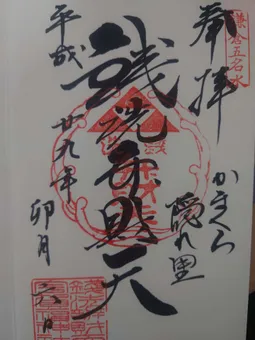 鎌倉五名水
奉拝
かまくら
隠れ里
銭洗弁財天
平成廿九年
卯月
六日